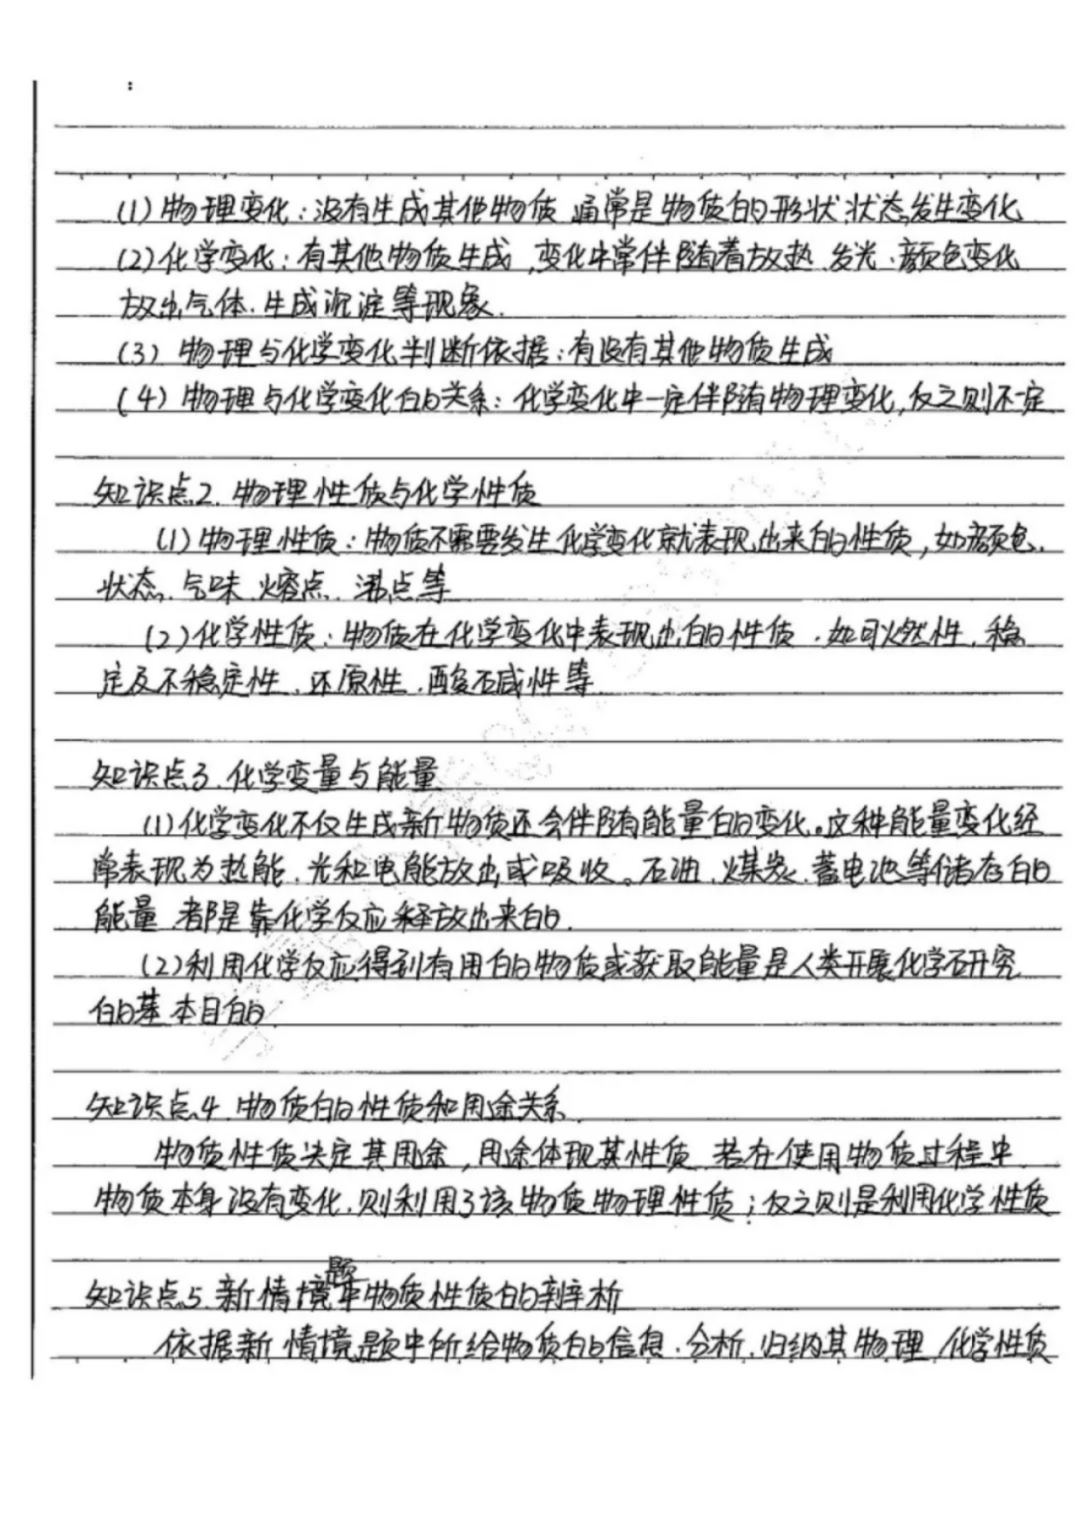 (1)物理变化:没有生成其他物质 通常是物质的形状 状态发生变化
(2)化学变化:有其他物质生成,变化中常伴随着放热、发光、颜色变化
放出气体、生成沉淀等现象.
(3)物理与化学变化判断依据:有没有其他物质生成
(4)物理与化学变化的关系:化学变化中一定伴随有物理变化,反之则不一定
知识点2.物理性质与化学性质
(1)物理性质:物质不需要发生化学变化就表现出来的性质,如颜色、
状态、气味、熔点、沸点等
(2)化学性质:物质在化学变化中表现出的性质.如可燃性、稳
定及不稳定性、还原性、酸碱性等
知识点3.化学变量与能量
(1)化学变化不仅生成新物质还会伴随能量的变化。这种能量变化经
常表现为热能、光和电能放出或吸收。石油、煤炭、蓄电池等储存的
能量,都是靠化学反应释放出来的.
(2)利用化学反应得到有用的物质或获取能量是人类开展化学研究
的基本目的
知识点4.物质的性质和用途关系
物质性质决定其用途,用途体现其性质 若在使用物质过程中
物质本身没有变化,则利用了该物质物理性质;反之则是利用化学性质
知识点5.新情境题中物质性质的辨析
依据新情境题中所给物质的信息.分析、归纳其物理、化学性质